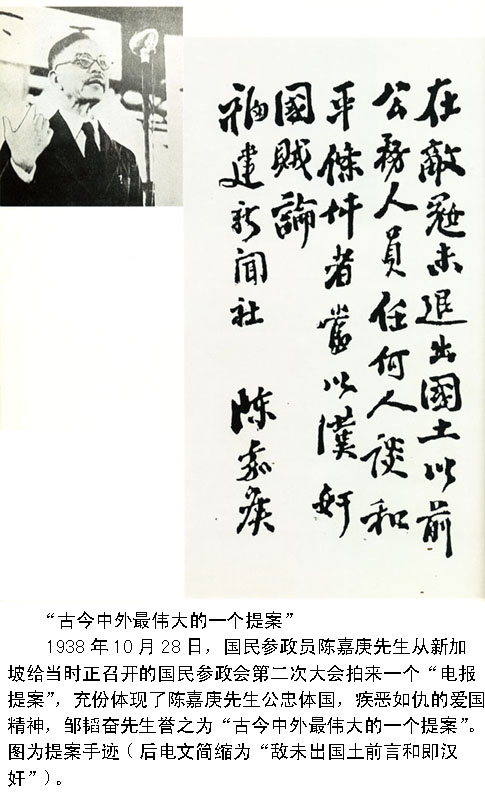 在敵寇未退出國土以前
公務人員任何人談和
平條件者當以漢奸
國賊論
福建新聞社 陳嘉庚
“古今中外最伟大的一个提案”
1938年10月28日，国民参政员陈嘉庚先生从新加
坡给当时正召开的国民参政会第二次大会拍来一个“电报
提案”，充份体现了陈嘉庚先生公忠体国，疾恶如仇的爱国
精神，邹韬奋先生誉之为“古今中外最伟大的一个提案”。
图为提案手迹（后电文简缩为“敌未出国土前言和即汉
奸”）。